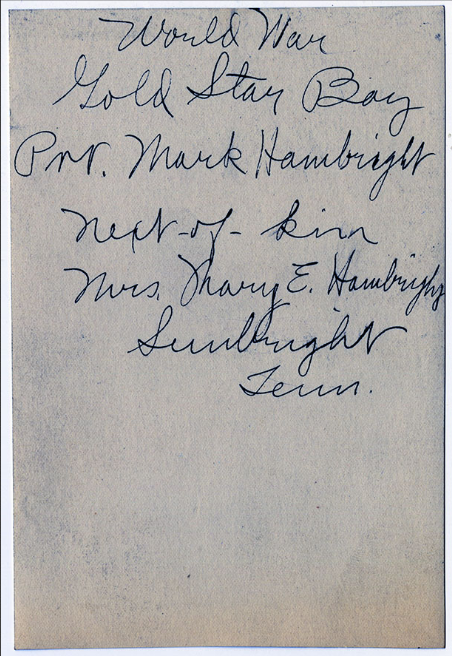 World War
Gold Star Boy
Pvt. Mark Hambright
Next-of-kin
Mrs. Mary E. Hambright
Sunbright
Tenn.